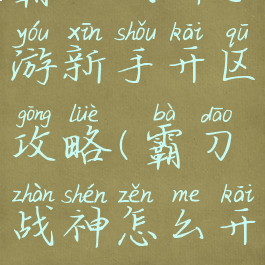 yóu xīn shǒu kāi qū
游新手开区
gōng lüè bà dāo
攻略(霸刀
zhàn shén zěn me kāi
战神怎么开